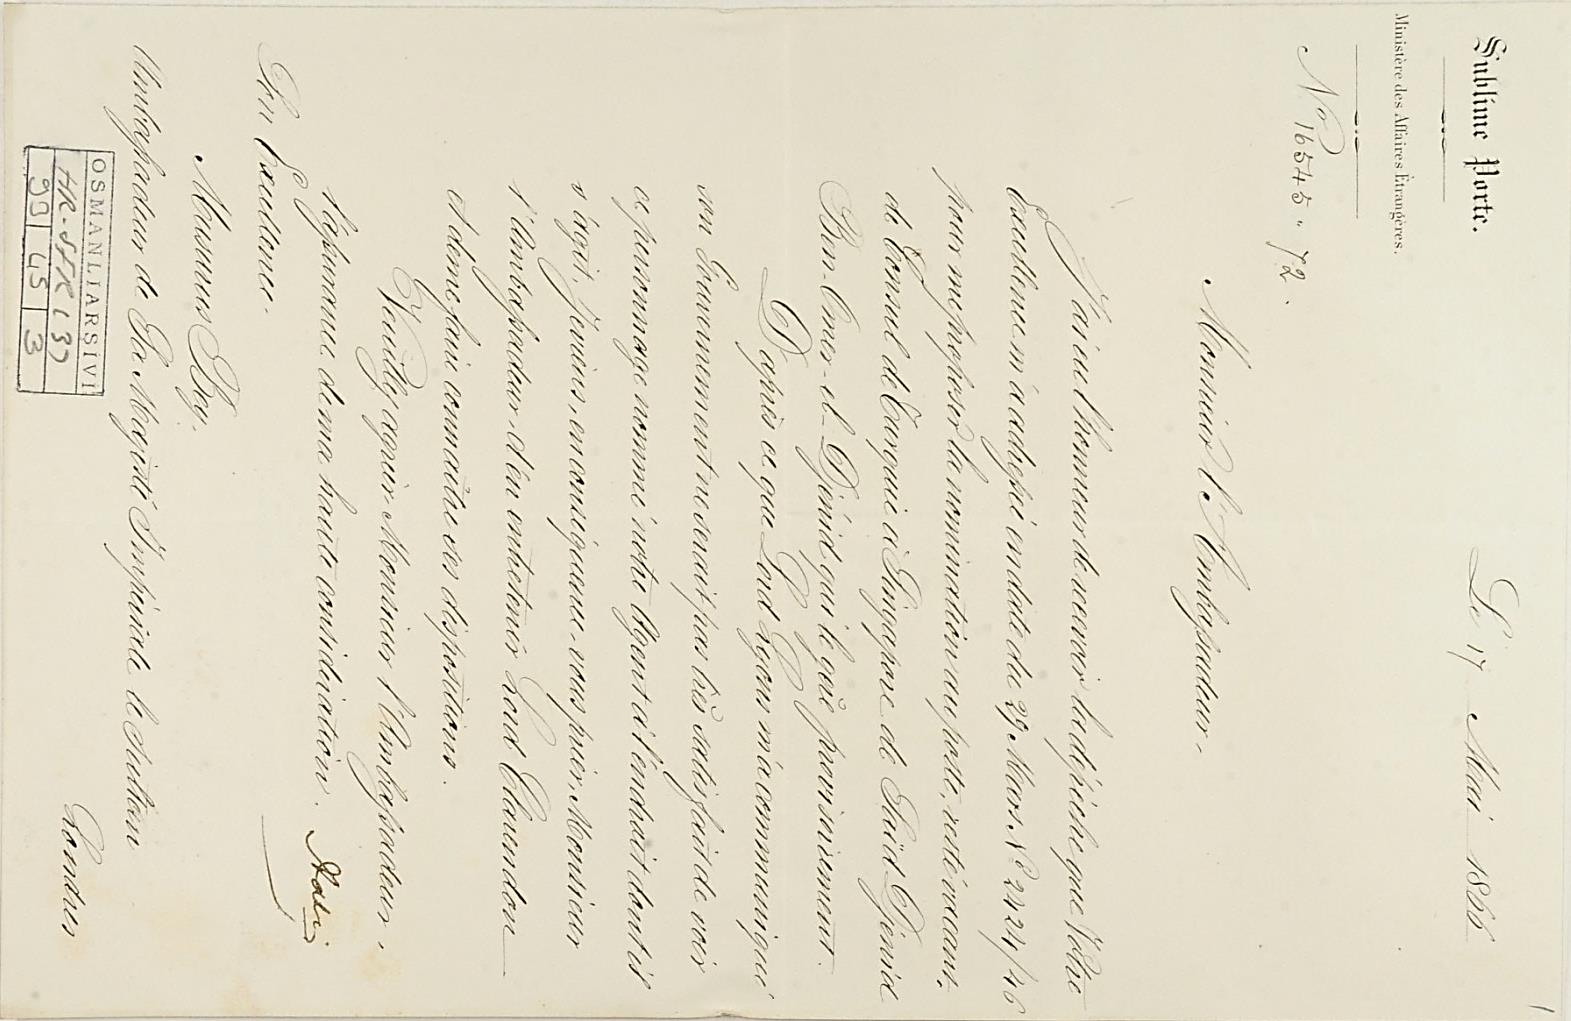 Sublime Porte.
Ministère des Affaires Étrangères.
Le 17 Mai 1866
No 16545 " 72.
Monsieur l'Ambassadeur.
J'ai eu l'honneur de recevoir la dépêche que Votre
Excellence m'a adressée en date du 29 Mars No 2424/46
pour me proposer la nomination au poste, resté vacant,
de Consul de Turquie à Singapore de Saïd Djénid
Ben-Omer-el-Djénid qui le gère provisoirement.
D'après ce que Lord Lyons m'a communiqué
son Gouvernement ne serait pas très satisfait de voir
ce personnage nommé notre Agent à l'endroit dont il
s'agit. Je viens, en conséquence, vous prier, Monsieur
l'Ambassadeur, d'en entretenir Lord Clarendon
et de me faire connaître ses dispositions.
Veuillez agréer, Monsieur l'Ambassadeur,
l'assurance de ma haute considération.
Aali
Son Excellence
Musurus Bey,
Ambassadeur de Sa Majesté Impériale le Sultan
Londres
OSMANLI ARŞİVİ
HR-SFR (3)
99 45 3